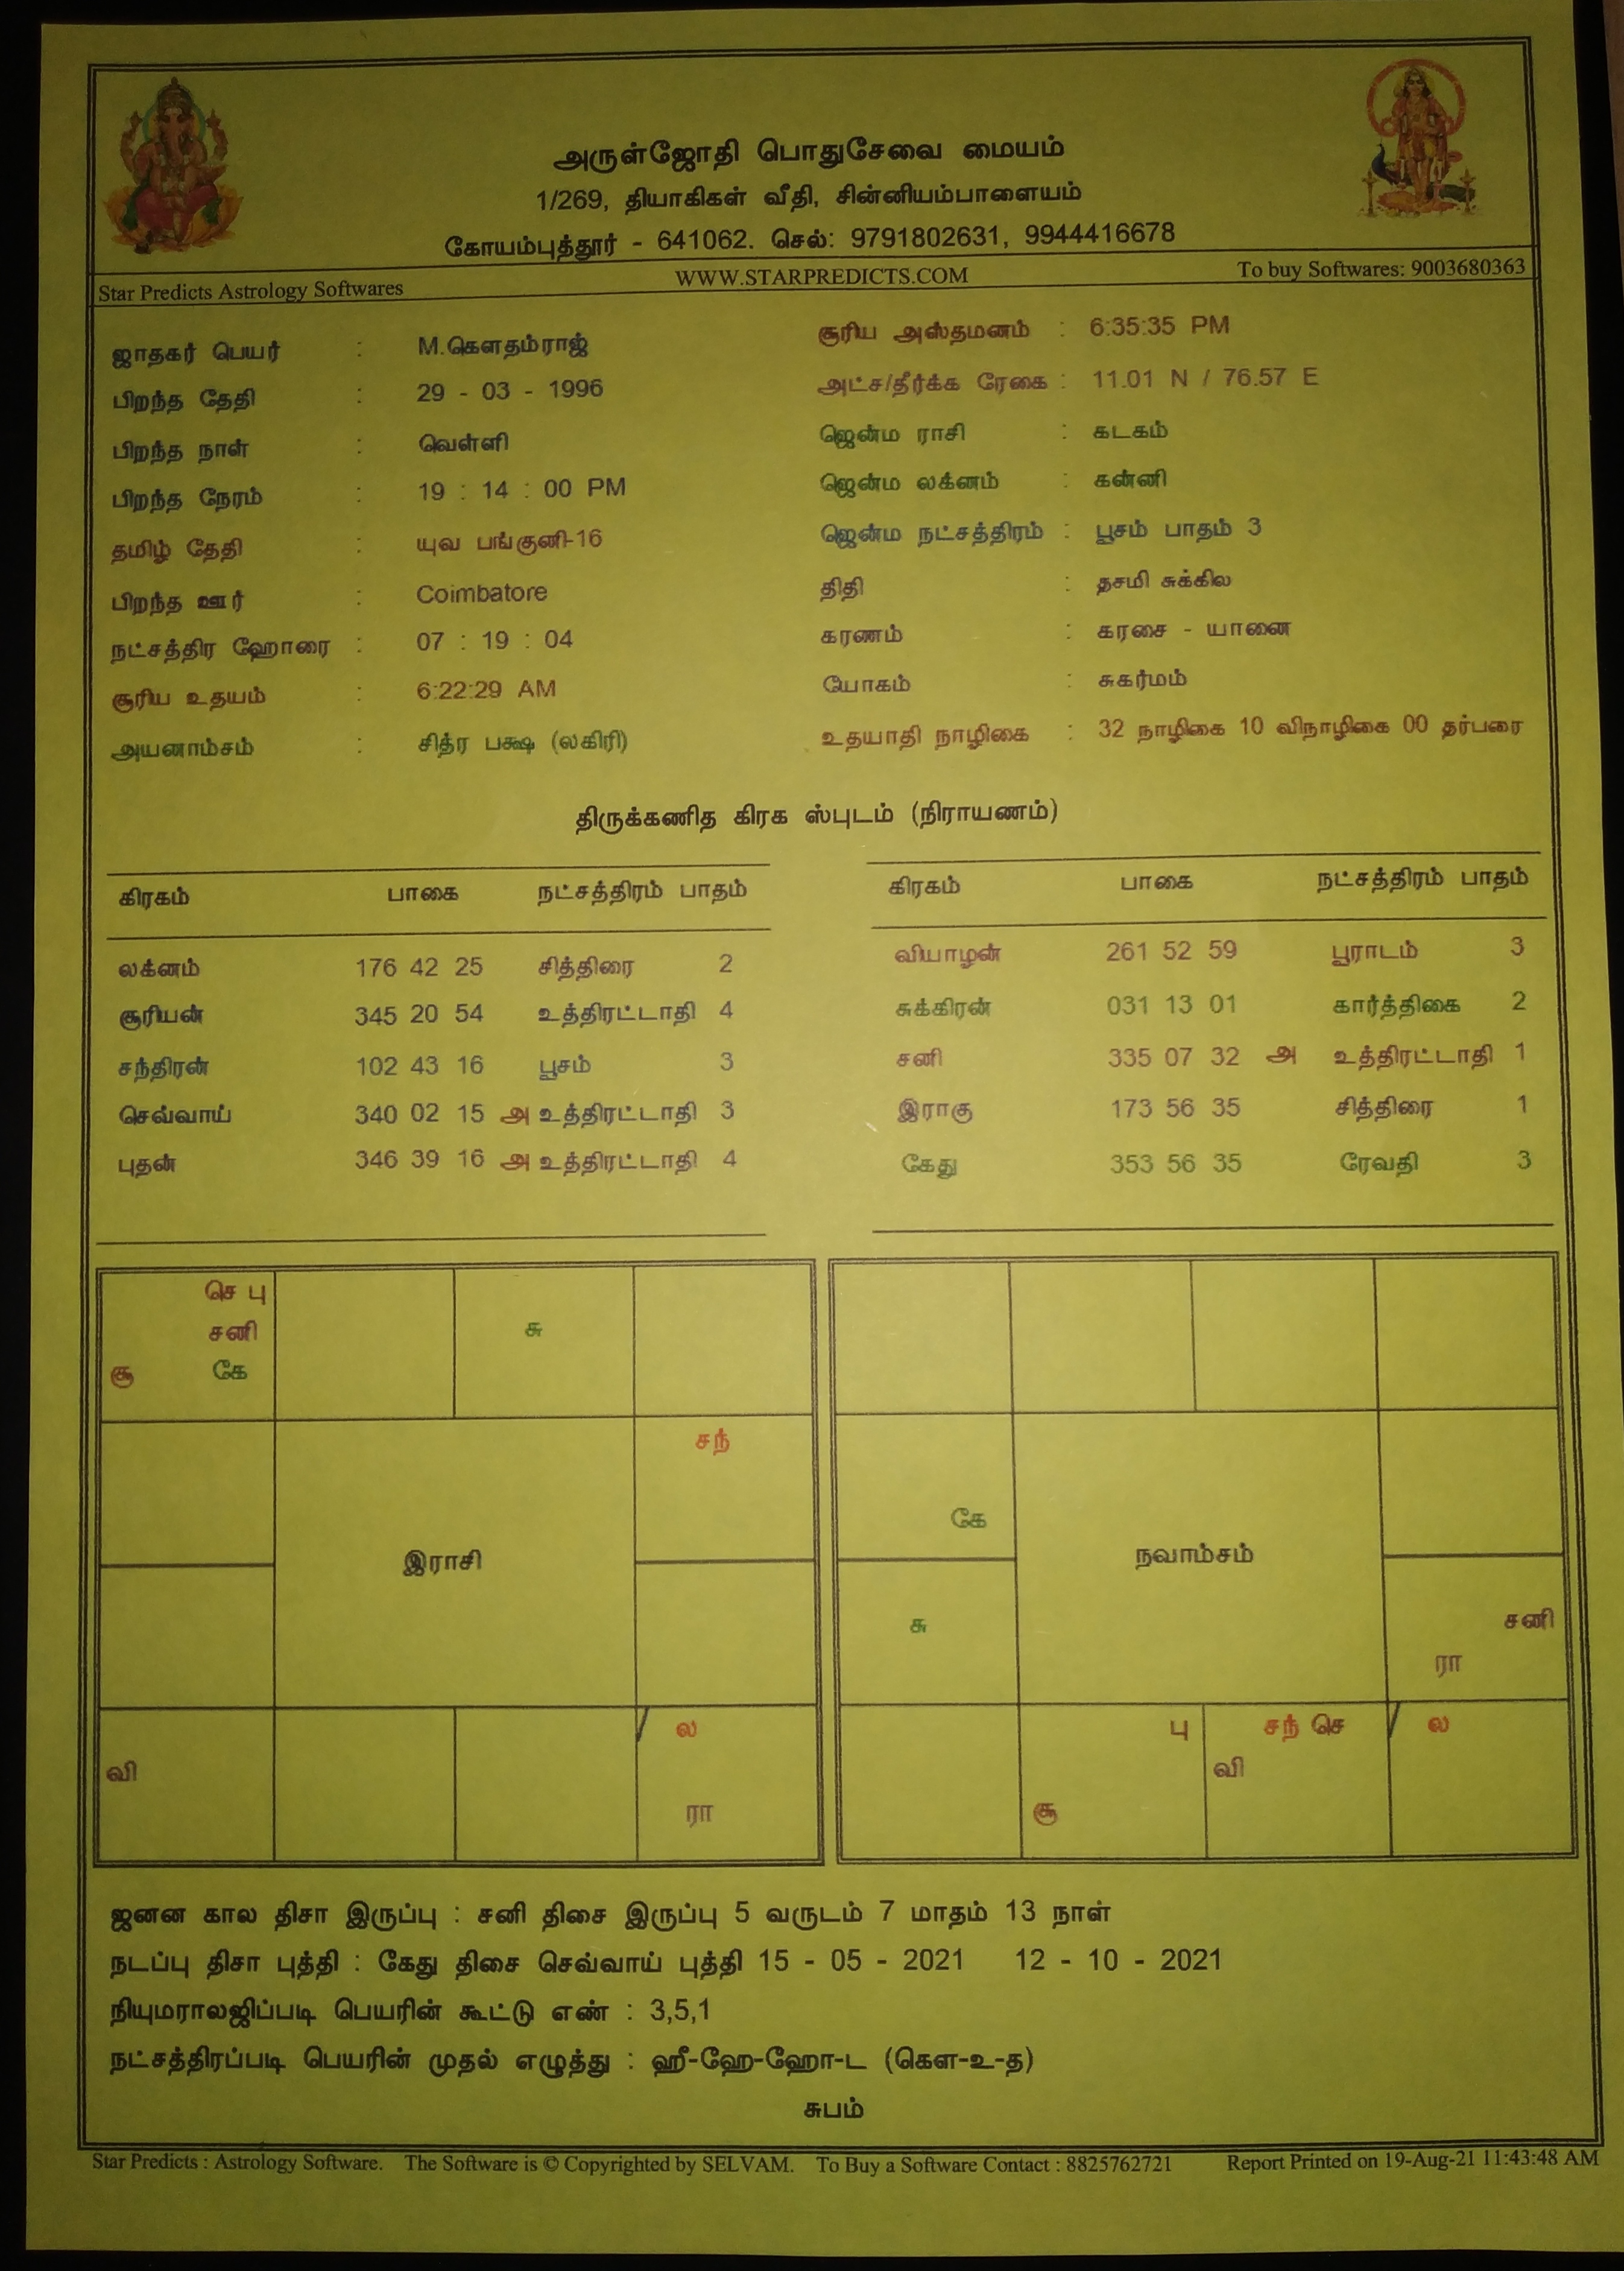 அருள்ஜோதி பொதுசேவை மையம்
1/269, தியாகிகள் வீதி, சின்னியம்பாளையம்
கோயம்புத்தூர் - 641062. செல்: 9791802631, 9944416678
Star Predicts Astrology Softwares WWW.STARPREDICTS.COM To buy Softwares: 9003680363
ஜாதகர் பெயர் : M.கௌதம்ராஜ்
பிறந்த தேதி : 29 - 03 - 1996
பிறந்த நாள் : வெள்ளி
பிறந்த நேரம் : 19 : 14 : 00 PM
தமிழ் தேதி : யுவ பங்குனி-16
பிறந்த ஊர் : Coimbatore
நட்சத்திர ஹோரை : 07 : 19 : 04
சூரிய உதயம் : 6:22:29 AM
அயனாம்சம் : சித்ர பக்ஷ (லகிரி)
சூரிய அஸ்தமனம் : 6:35:35 PM
அட்ச/தீர்க்க ரேகை : 11.01 N / 76.57 E
ஜென்ம ராசி : கடகம்
ஜென்ம லக்னம் : கன்னி
ஜென்ம நட்சத்திரம் : பூசம் பாதம் 3
திதி : தசமி சுக்கில
கரணம் : கரசை - யானை
யோகம் : சுகர்மம்
உதயாதி நாழிகை : 32 நாழிகை 10 விநாழிகை 00 தர்பரை
திருக்கணித கிரக ஸ்புடம் (நிராயணம்)
கிரகம் பாகை நட்சத்திரம் பாதம்
லக்னம் 176 42 25 சித்திரை 2
சூரியன் 345 20 54 உத்திரட்டாதி 4
சந்திரன் 102 43 16 பூசம் 3
செவ்வாய் 340 02 15 அ உத்திரட்டாதி 3
புதன் 346 39 16 அ உத்திரட்டாதி 4
கிரகம் பாகை நட்சத்திரம் பாதம்
வியாழன் 261 52 59 பூராடம் 3
சுக்கிரன் 031 13 01 கார்த்திகை 2
சனி 335 07 32 அ உத்திரட்டாதி 1
இராகு 173 56 35 சித்திரை 1
கேது 353 56 35 ரேவதி 3
செ பு
சனி
சூ கே
சு
சந்
இராசி
வி
ல
ரா
கே
நவாம்சம்
சு
சனி
ரா
பு
சூ
சந் செ
வி
ல
ஜனன கால திசா இருப்பு : சனி திசை இருப்பு 5 வருடம் 7 மாதம் 13 நாள்
நடப்பு திசா புத்தி : கேது திசை செவ்வாய் புத்தி 15 - 05 - 2021 12 - 10 - 2021
நியுமராலஜிப்படி பெயரின் கூட்டு எண் : 3,5,1
நட்சத்திரப்படி பெயரின் முதல் எழுத்து : ஹீ-ஹே-ஹோ-ட (கௌ-உ-த)
சுபம்
Star Predicts : Astrology Software. The Software is © Copyrighted by SELVAM. To Buy a Software Contact : 8825762721 Report Printed on 19-Aug-21 11:43:48 AM